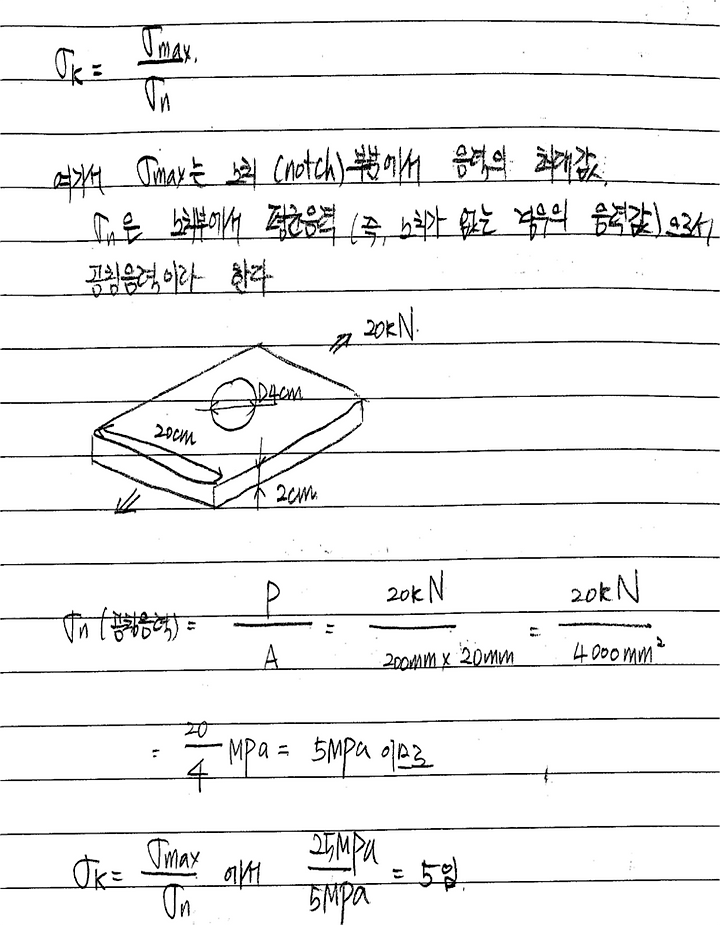 σk = σmax. / σn
여기서 σmax는 노치 (notch) 부분에서 응력의 최대값,
σn은 노치부에서 평균응력 (즉, 노치가 없는 경우의 응력값)으로서
공칭응력이라 한다
20kN.
D4cm
20cm
2cm.
σn (공칭응력) = P / A = 20kN / 200mm x 20mm = 20kN / 4000mm²
= 20 / 4 MPa = 5MPa 이므로
σk = σmax / σn 에서 25MPa / 5MPa = 5임.